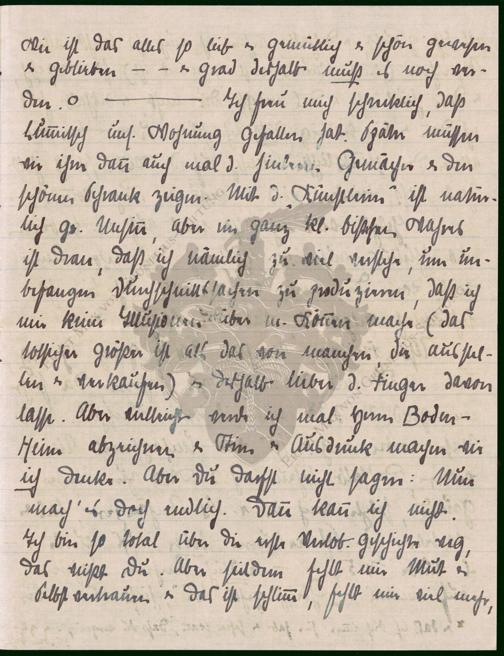 Wie ist das alles so lieb & gemütlich & schön gewesen
& geblieben — — & grad deshalb muß es noch wer-
den. o ——— Ich freu mich schrecklich, daß
uns. Wohnung gefallen hat. Später müssen
wir ihm dan auch mal d. hinteren Gemächer & den
schönen Schrank zeigen. Mit d. „Künstlerin" ist natür-
lich gr. Unsinn, aber ein ganz kl. bißchen Wahres
ist dran, daß ich nämlich zu viel verstehe, um un-
befangen Durchschnittssachen zu produzieren, daß ich
mir keine Illusionen über m. Können mache (das
sicher größer ist als das von manchen, die ausstel-
len & verkaufen) & deshalb lieber d. Finger davon
lasse. Aber vielleicht werde ich mal Herrn Boden-
heim abzeichnen & Stirn & Ausdruck machen wie
ich denke. Aber Du darfst nicht sagen: Nun
mach's doch endlich. Dan kan ich nicht.
Ich bin so total über die erste Verlob.-Geschichte weg,
das weißt Du. Aber seitdem fehlt mir Mut &
Selbstvertrauen & das ist schlim, fehlt mir viel mehr,